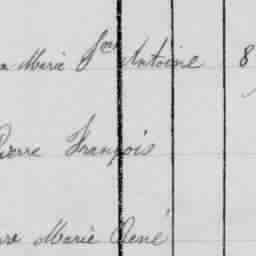 Marie Antoine 8
Pierre François
Marie René